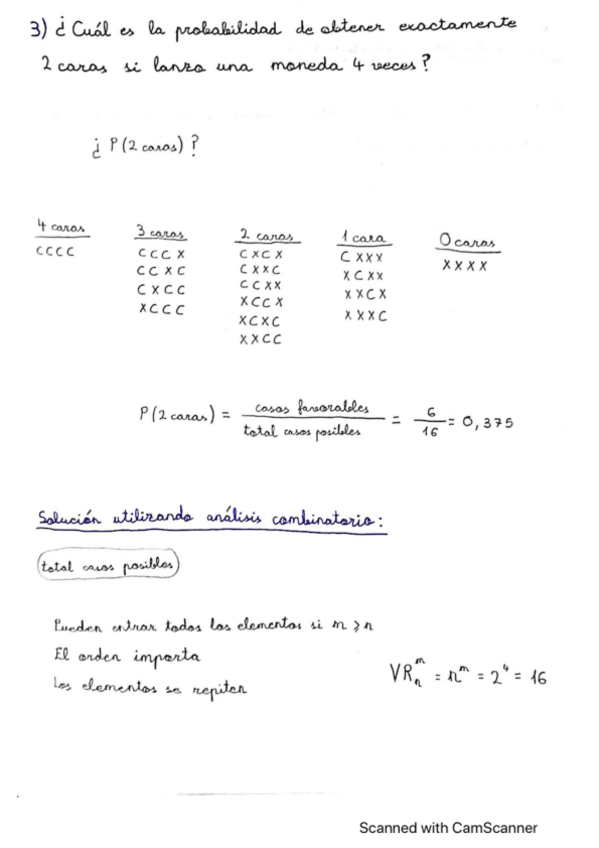 3) ¿ Cuál es la probabilidad de obtener exactamente
2 caras si lanzo una moneda 4 veces ?
¿ P (2 caras) ?
4 caras
CCCC
3 caras
CCCX
CCXC
CXCC
XCCC
2 caras
CXCX
CXXC
CCXX
XCCX
XCXC
XXCC
1 cara
CXXX
XCXX
XXCX
XXXC
0 caras
XXXX
P (2 caras) = casos favorables / total casos posibles = 6/16 = 0,375
Solución utilizando análisis combinatorio :
total casos posibles
Pueden entrar todos los elementos si m ≥ n
El orden importa
Los elementos se repiten
VRₙᵐ = nᵐ = 2⁴ = 16
Scanned with CamScanner